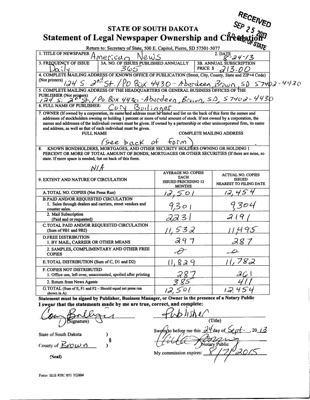 RECEIVED
SEP 23 2013
STATE OF SOUTH DAKOTA
Statement of Legal Newspaper Ownership and Circulation
Return to: Secretary of State, 500 E. Capitol, Pierre, SD 57501-5077
1. TITLE OF NEWSPAPER American News
2. DATE
3. FREQUENCY OF ISSUE Daily
3A. NO. OF ISSUES PUBLISHED ANNUALLY 365
3B. ANNUAL SUBSCRIPTION PRICE $ 213.00
4. COMPLETE MAILING ADDRESS OF KNOWN OFFICE OF PUBLICATION (Street, City, County, State and ZIP+4 Code)
(Not printers) 124 S. 2nd St / PO Box 4430 - Aberdeen Brown, SD 57402-4430
5. COMPLETE MAILING ADDRESS OF THE HEADQUARTERS OR GENERAL BUSINESS OFFICES OF THE
PUBLISHER (Not printers)
124 S. 2nd St. / PO Box 4430 - Aberdeen, Brown, SD, 57402-4430
6. FULL NAME OF PUBLISHER: Cory Bollinger
7. OWNER (If owned by a corporation, its name and address must be stated and
addresses of stockholders owning or holding 1 percent or more of total amount of stock. If not owned by a corporation, the
names and addresses of the individual owners must be given. If owned by a partnership or other unincorporated firm, its name
and address, as well as that of each individual must be given.
FULL NAME COMPLETE MAILING ADDRESS
(see back of form)
8. KNOWN BONDHOLDERS, MORTGAGEES, AND OTHER SECURITY HOLDERS OWNING OR HOLDING 1
PERCENT OR MORE OF TOTAL AMOUNT OF BONDS, MORTGAGES, OR OTHER SECURITIES (If there are none, so
state. If more space is needed, list on back of this form.
N/A
9. EXTENT AND NATURE OF CIRCULATION
AVERAGE NO. COPIES EACH ISSUED PRECEDING 12 MONTHS
ACTUAL NO. COPIES ISSUED NEAREST TO FILING DATE
A. TOTAL NO. COPIES (Net Press Run) 12,501 12,454
B. PAID AND/OR REQUESTED CIRCULATION
1. Sales through dealers and carriers, street vendors and
counter sales. 9301 9304
2. Mail Subscription
(Paid and or requested) 2231 2191
C. TOTAL PAID AND/OR REQUESTED CIRCULATION
(Sum of 9B1 and 9B2) 11,532 11,495
D. FREE DISTRIBUTION
1. BY MAIL, CARRIER OR OTHER MEANS 297 287
2. SAMPLES, COMPLIMENTARY AND OTHER FREE
COPIES
E. TOTAL DISTRIBUTION (Sum of C, D1 and D2) 11,829 11,782
F. COPIES NOT DISTRIBUTED
1. Office use, left over, unaccounted, spoiled after printing 287 261
2. Return from News Agents 385 411
G. TOTAL (Sum of E, F1 and F2 - Should equal net press run
shown in A) 12,501 12,454
Statement must be signed by Publisher, Business Manager, or Owner in the presence of a Notary Public
I swear that the statements made by me are true, correct, and complete:
Cory Bollinger Publisher
(Signature) (Title)
State of South Dakota ) Sworn to before me this 24 day of Sept., 20 13
) §
County of Brown ) Notary Public
(Seal) My commission expires: